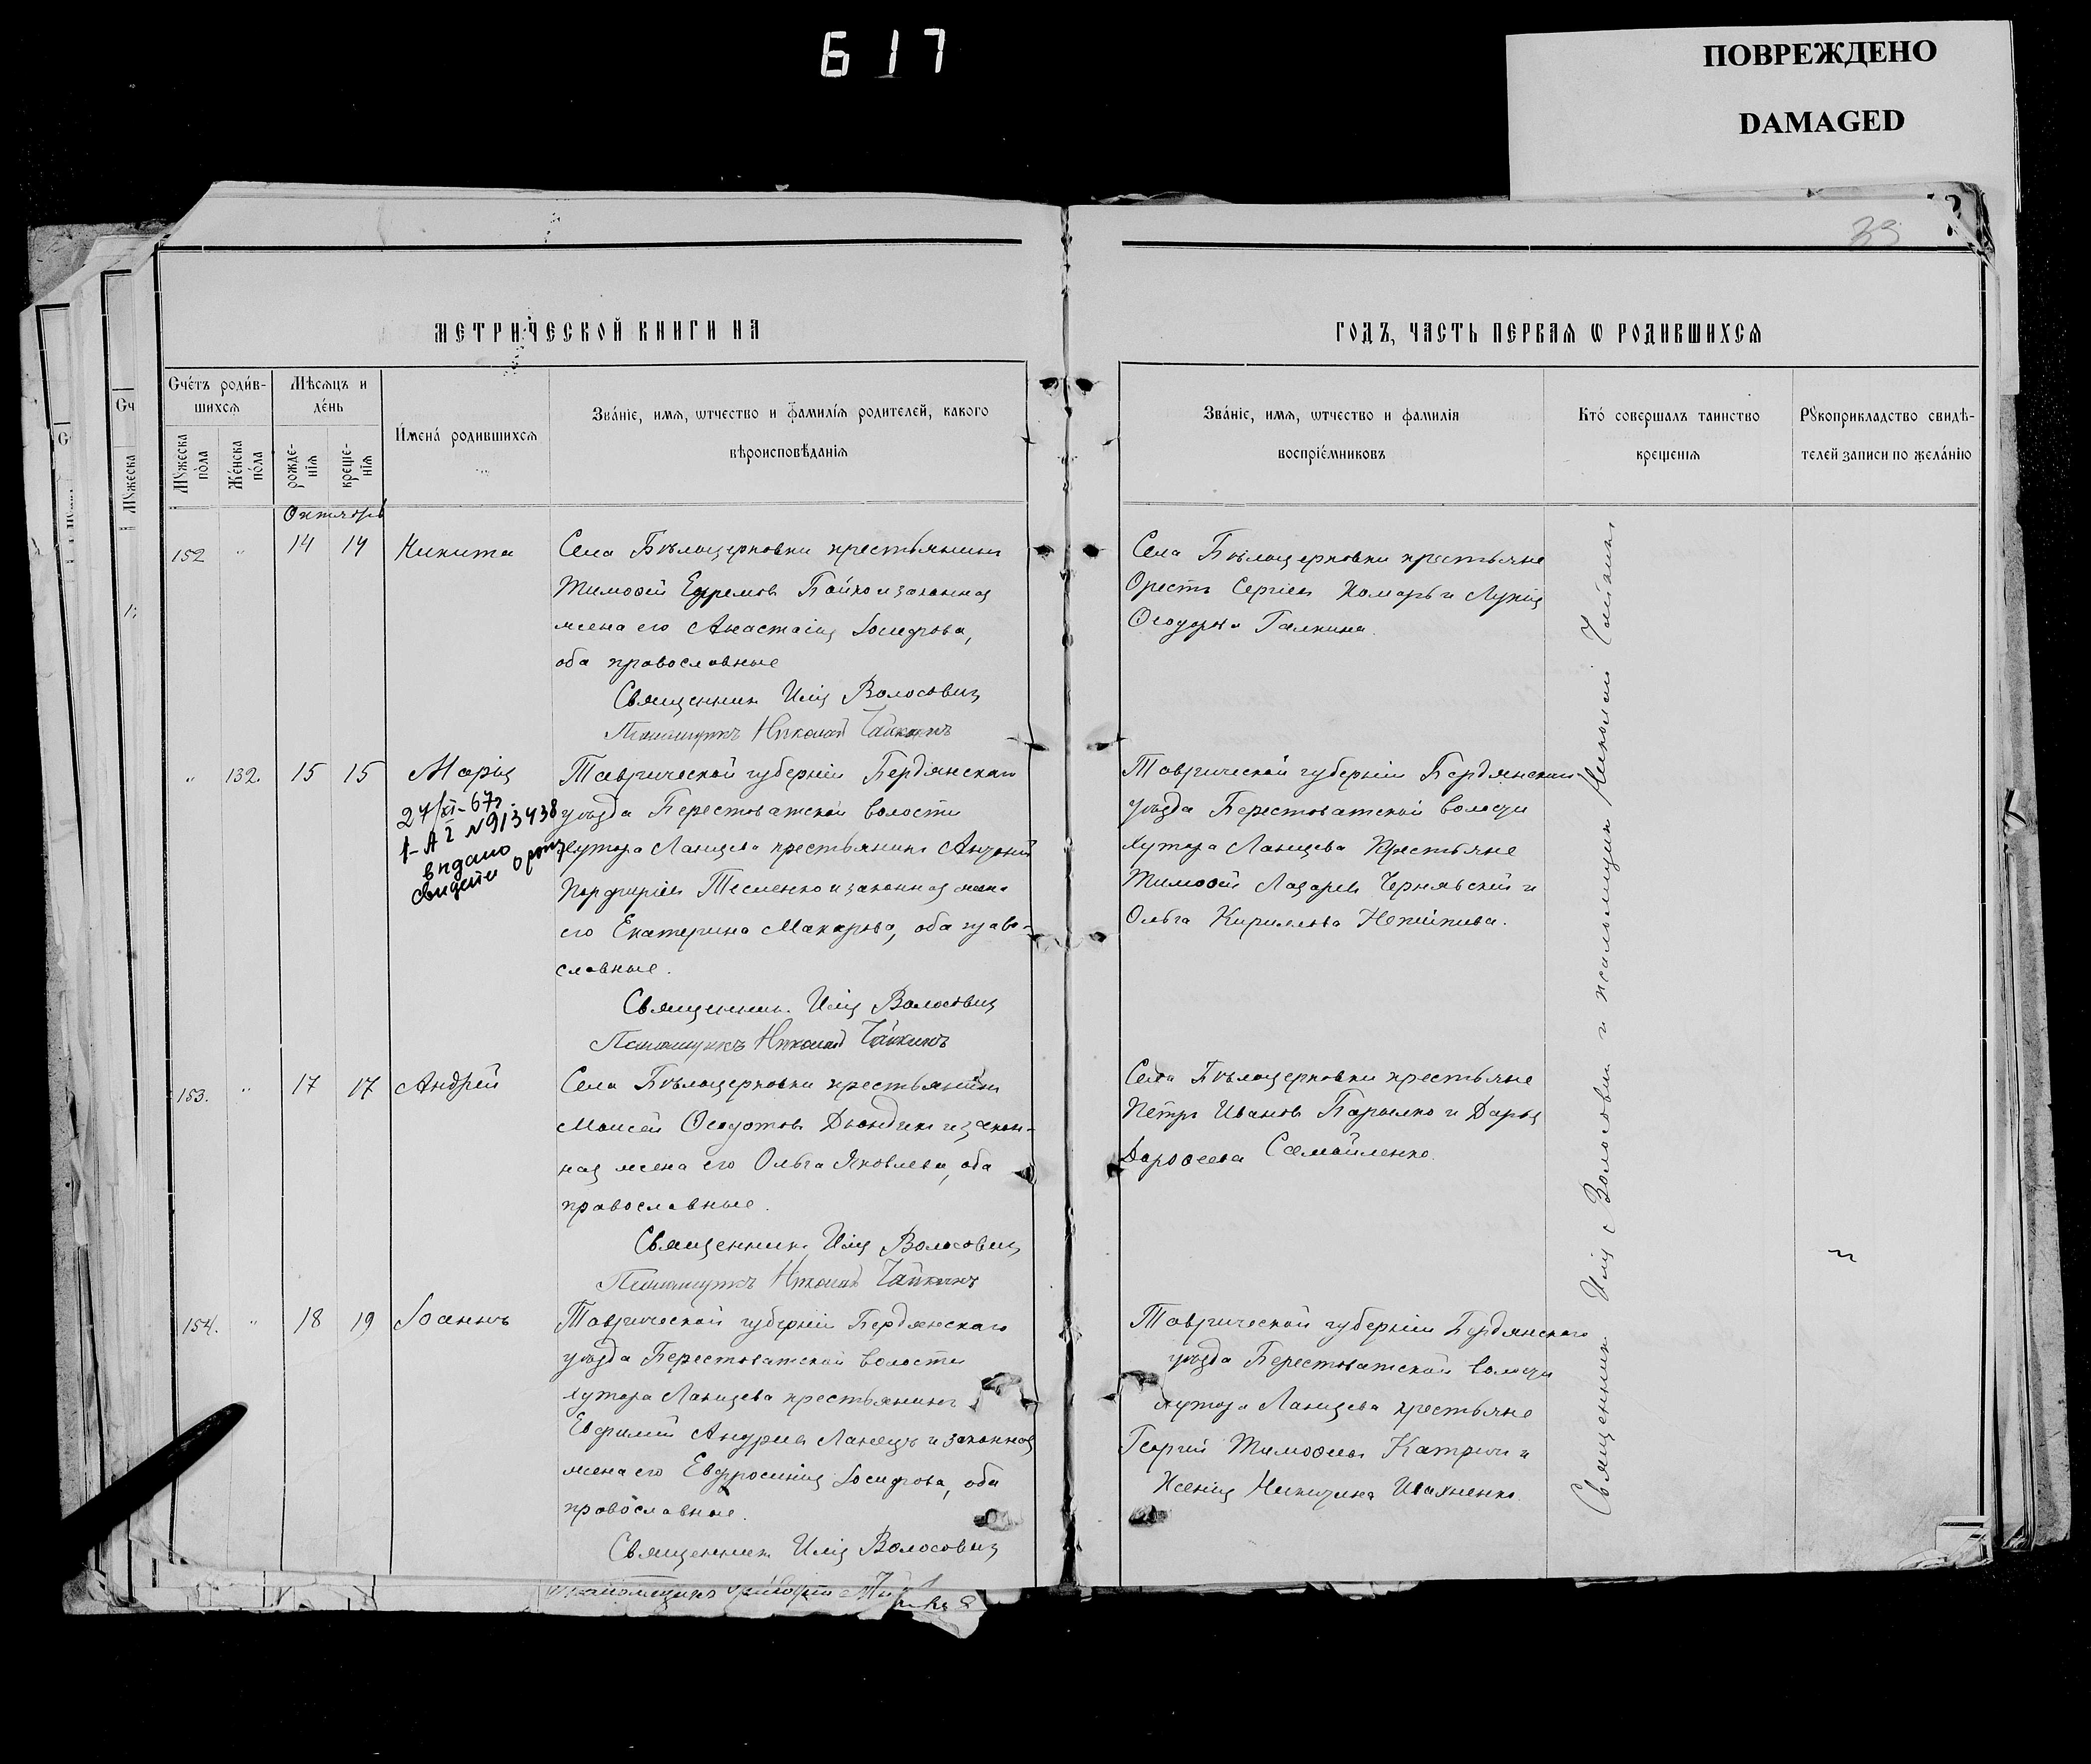 617
ПОВРЕЖДЕНО
DAMAGED
39
МЕТРИЧЕСКОЙ КНИГИ НА
ГОДЪ, ЧАСТЬ ПЕРВАѦ Ѡ РОДИВШИХСѦ
Счéтъ роди́вшихсѧ
Мѣсѧцъ и де́нь
И́мена́ родившихсѧ
Зва́нїе, имѧ, ѿтчество и фамилїѧ родителей, какого вѣроисповѣданїѧ
Мꙋжеска по́ла
Же́нска по́ла
рожденїѧ
крещенїѧ
Зва́нїе, имѧ, ѿтчество и фамилїѧ воспрїе́мниковъ
Кто́ совершалъ таинство крещенїѧ
Рꙋкоприкладство свидѣтелей записи по жела́нїю
Октябрь
152 " 14 14 Никита
Села Бѣлоцерковки крестьянинъ
Тимоѳей Ефремовъ Бойко и законная
жена его Анастасія Іосифова,
оба православные
Священникъ Илія Волосовичъ
Псаломщикъ Николай Чайкинъ
Села Бѣлоцерковки крестьяне
Орестъ Сергіевъ Комаръ и Лукія
Ѳеодорова Галкина.
" 132. 15 15 Марія
27/XI-67г.
I-АІ №913438
видано
свидет о рожд
Таврической губерніи Бердянскаго
уѣзда Берестоватской волости
хутора Ланцева крестьянинъ Антоній
Порфиріевъ Тесленко и законная жена
его Екатерина Макарова, оба право-
славные.
Священникъ Илія Волосовичъ
Псаломщикъ Николай Чайкинъ
Таврической губерніи Бердянскаго
уѣзда Берестоватской волости
хутора Ланцева крестьяне
Тимоѳей Лазаревъ Чернявскій и
Ольга Кириллова Непейпива.
153. " 17 17 Андрей
Села Бѣлоцерковки крестьянинъ
Моисей Ѳеодотовъ Дьондикъ и закон-
ная жена его Ольга Яковлева, оба
православные.
Священникъ Илія Волосовичъ
Псаломщикъ Николай Чайкинъ
Села Бѣлоцерковки крестьяне
Петръ Ивановъ Барылко и Дарья
Дороѳеева Самойленко.
154. " 18 19 Іоаннъ
Таврической губерніи Бердянскаго
уѣзда Берестоватской волости
хутора Ланцева крестьянинъ
Евфимій Андреевъ Ланецъ и законная
жена его Евфросинія Іосифова, оба
православные.
Священникъ Илія Волосовичъ
Таврической губерніи Бердянскаго
уѣзда Берестоватской волости
хутора Ланцева крестьяне
Георгій Тимоѳеевъ Катричъ и
Ксенія Никитина Ивахненко.
Священникъ Илія Волосовичъ и псаломщикъ Николай Чайкинъ